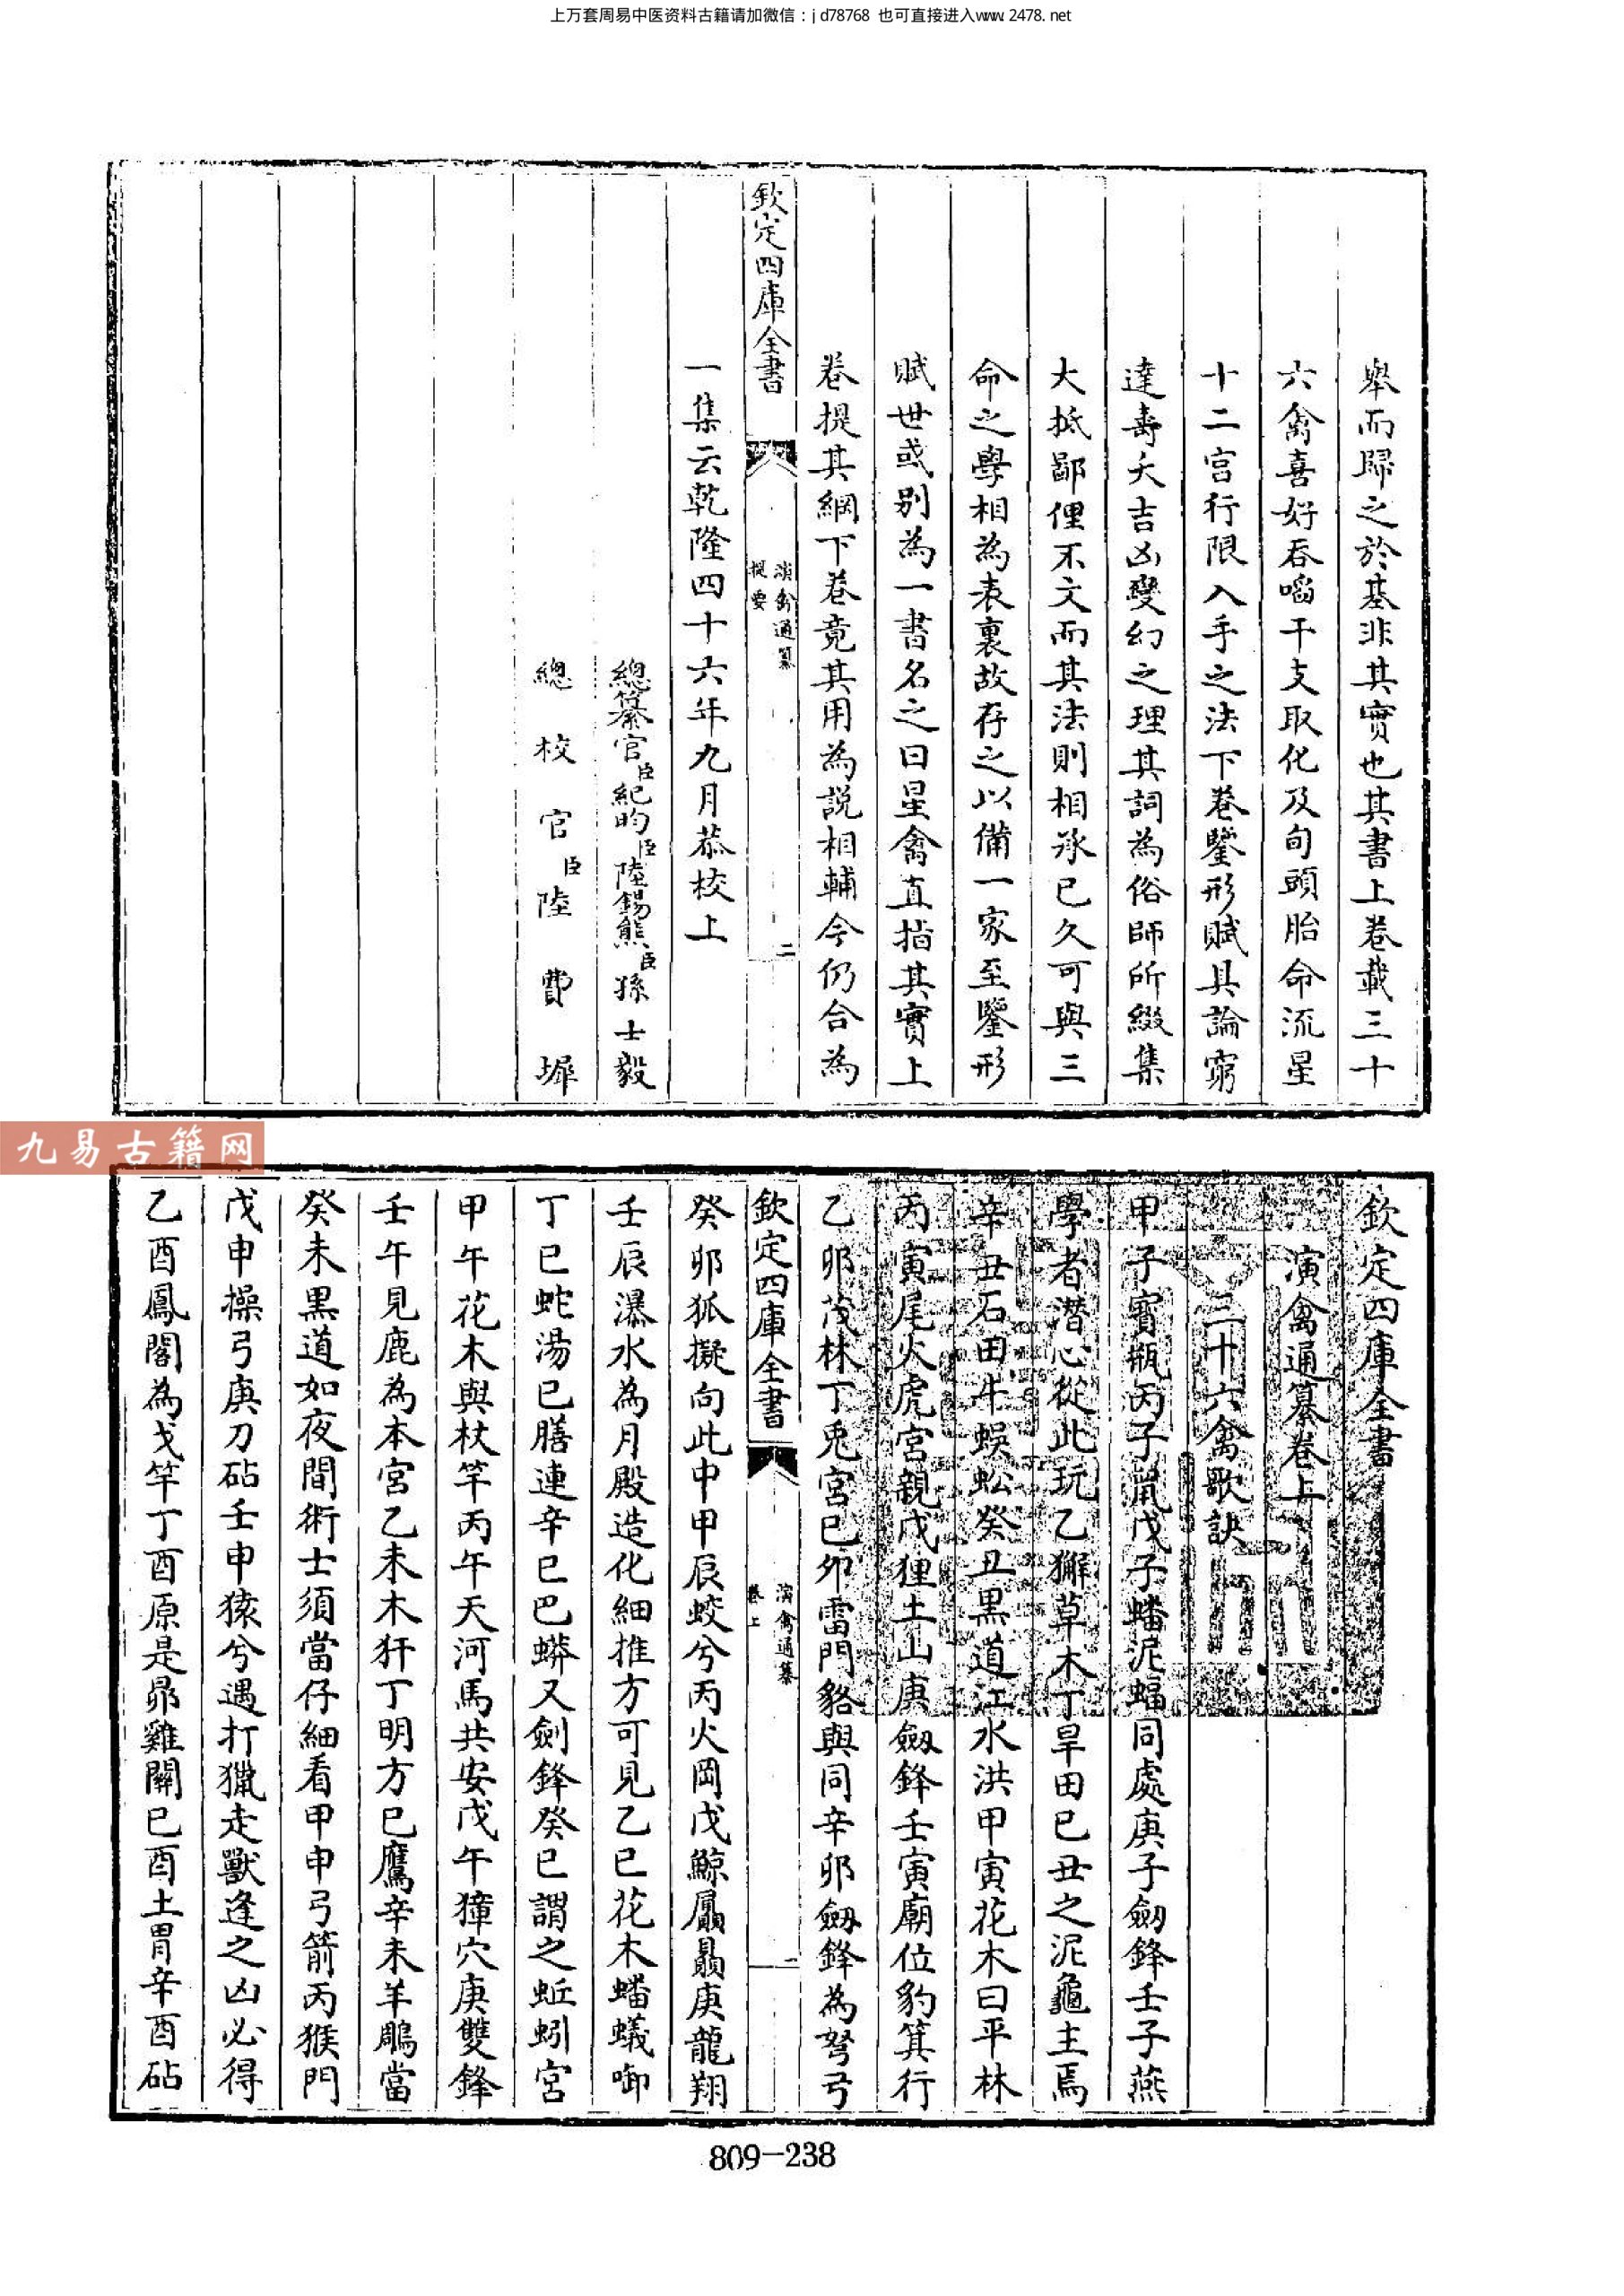 上万套周易中医资料古籍请加微信：jd78768 也可直接进入www.2478.net
舉而歸之於基非其實也其書上卷載三十
六禽喜好吞啗干支取化及旬頭胎命流星
十二宮行限入手之法下卷鑒形賦具論窮
達壽夭吉凶變幻之理其詞為俗師所綴集
大抵鄙俚不文而其法則相承已久可與三
命之學相為表裏故存之以備一家至鑒形
賦世或别為一書名之曰星禽直指其實上
卷提其綱下卷竟其用為説相輔今仍合為
欽定四庫全書
演禽通纂
提要
二
一集云乾隆四十六年九月恭校上
總纂官臣紀昀臣陸錫熊臣孫士毅
總校官臣陸費墀
九易古籍网
欽定四庫全書
演禽通纂卷上
三十六禽歌訣
甲子寳瓶丙子鼠戊子蟠泥蝠同處庚子劒鋒壬子燕
學者潛心從此玩乙獬草木丁旱田巳丑之泥龜主焉
辛丑石田牛蜈蚣癸丑黒道江水洪甲寅花木曰平林
丙寅尾火虎宮親戊狸土山庚劒鋒壬寅廟位豹箕行
乙卯茂林丁兎宮巳卯雷門貉與同辛卯劒鋒為弩弓
欽定四庫全書
演禽通纂
卷上
一
癸卯狐擬向此中甲辰蛟兮丙火岡戊鯨屭贔庚龍翔
壬辰瀑水為月殿造化細推方可見乙巳花木蟠蟻啣
丁巳蛇湯巳膳連辛巳巴蟒又劍鋒癸巳謂之蚯蚓宮
甲午花木與杖竿丙午天河馬共安戊午獐穴庚雙鋒
壬午見鹿為本宮乙未木犴丁明方巳鷹辛未羊鵰當
癸未黒道如夜間術士須當仔細看甲申弓箭丙猴門
戊申操弓庚刀砧壬申猿兮遇打獵走獸逢之凶必得
乙酉鳳閣為戈竿丁酉原是昴雞關巳酉土胃辛酉砧
809-238